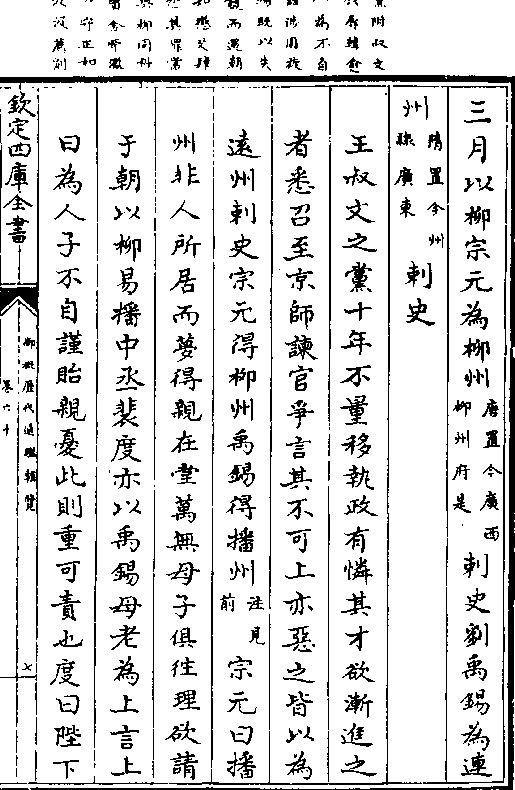 附叔文
為不自
既以失
而還朝
其罪當
與柳同州
三月以柳宗元為柳州唐置今廣西柳州府是刺史劉禹錫為連
州隋置今州隸廣東刺史
王叔文之黨十年不量移執政有憐其才欲漸進之
者悉召至京師諫官爭言其不可上亦惡之皆以為
遠州刺史宗元得柳州禹錫得播州注見前宗元曰播
州非人所居而夢得親在堂萬無母子俱往理欲請
于朝以柳易播中丞裴度亦以禹錫母老為上言上
曰為人子不自謹貽親憂此則重可責也度曰陛下
欽定四庫全書
御批歷代通鑑輯覽
卷六十
七